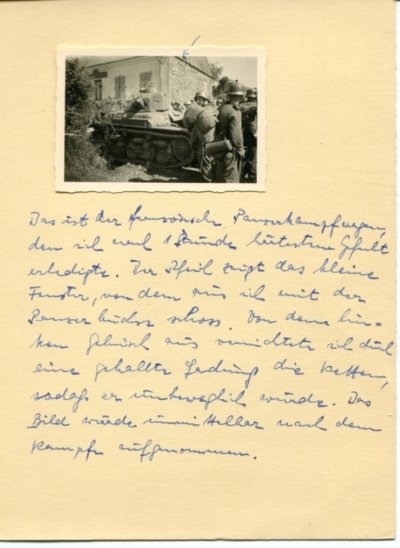 Das ist der französische Panzerkampfwagen,
den ich nach 1 Stunde härtestem
erledigte. Der Pfeil zeigt das kleine
Fenster, von dem aus ich mit der
Panzerbüchse schoss. Von dem lin-
ken aus vernichtete ich durch
eine geballte Ladung die Ketten,
sodaß er unbeweglich wurde. Das
Bild wurde unmittelbar nach dem
Kampfe aufgenommen.